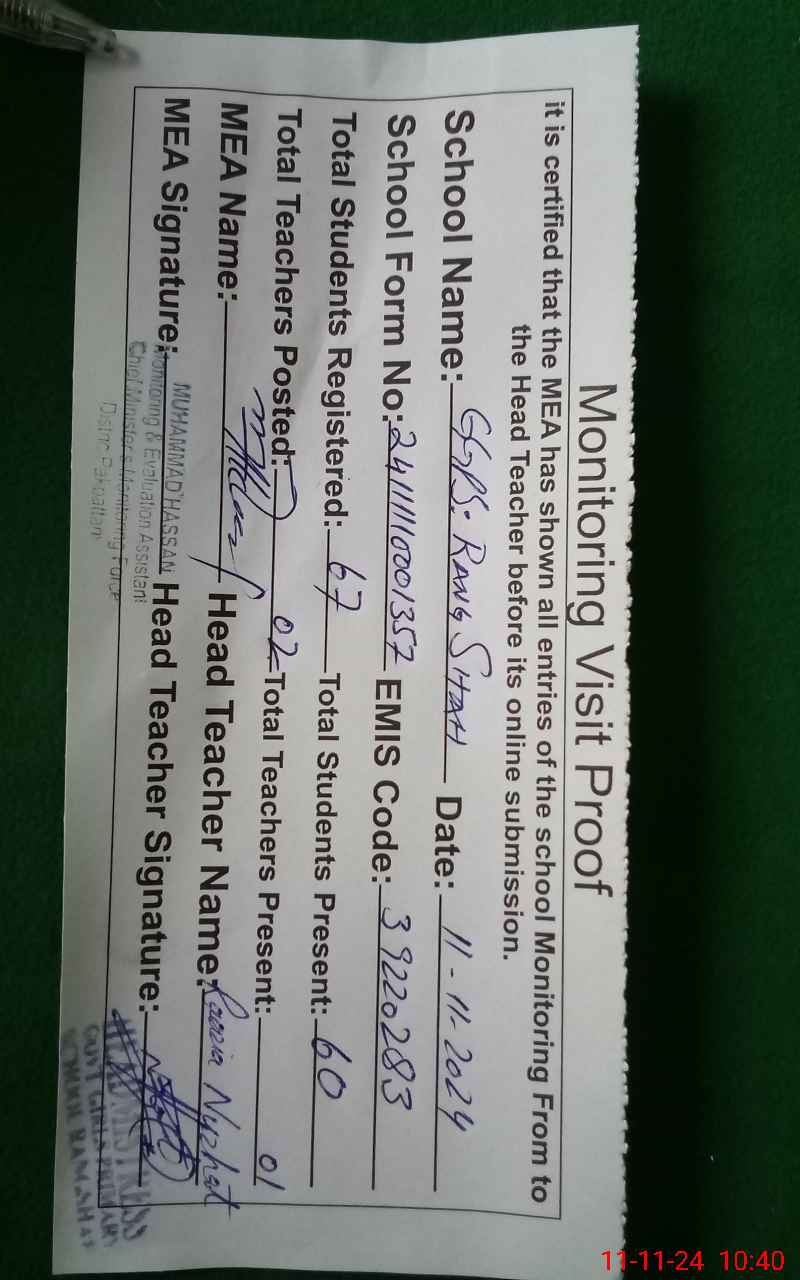 Monitoring Visit Proof
it is certified that the MEA has shown all entries of the school Monitoring From to
the Head Teacher before its online submission.
School Name: GGPS: RANG SHAH Date: 11-11-2024
School Form No: 241111110001357 EMIS Code: 39220283
Total Students Registered: 67 Total Students Present: 60
Total Teachers Posted: 02 Total Teachers Present: 01
MEA Name: Head Teacher Name: Nuzhat
MEA Signature: Head Teacher Signature:
MUHAMMAD HASSAN
Monitoring & Evaluation Assistant
Chief Minister's Monitoring Force
District Pakpattan
GOVT GIRLS PRIMARY
11-11-24 10:40